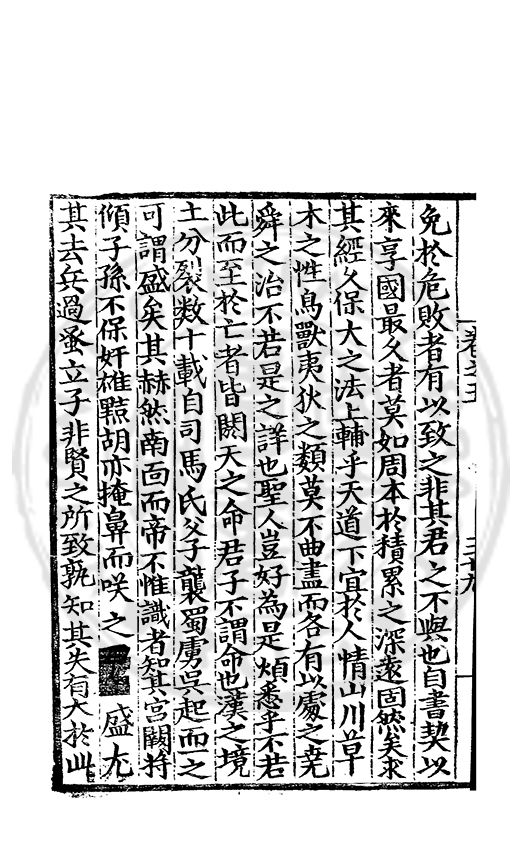 卷之五
三十九
免於危敗者有以致之非其君之不與也自書契以
來享國最久者莫如周本於積累之深遠固然矣求
其經久保大之法上輔乎天道下宜於人情山川草
木之性鳥獸夷狄之類莫不曲盡而各有以處之堯
舜之治不若是之詳也聖人豈好為是煩悉乎不若
此而至於亡者皆闕天之命君子不謂命也漢之境
土分裂数十載自司馬氏父子襲蜀虜吳起而一之
可謂盛矣其赫然南面而帝不惟識者知其宮闕將
傾子孫不保奸雄黠胡亦掩鼻而咲之 盛尤
其去兵過蚤立子非賢之所致孰知其失有大於此